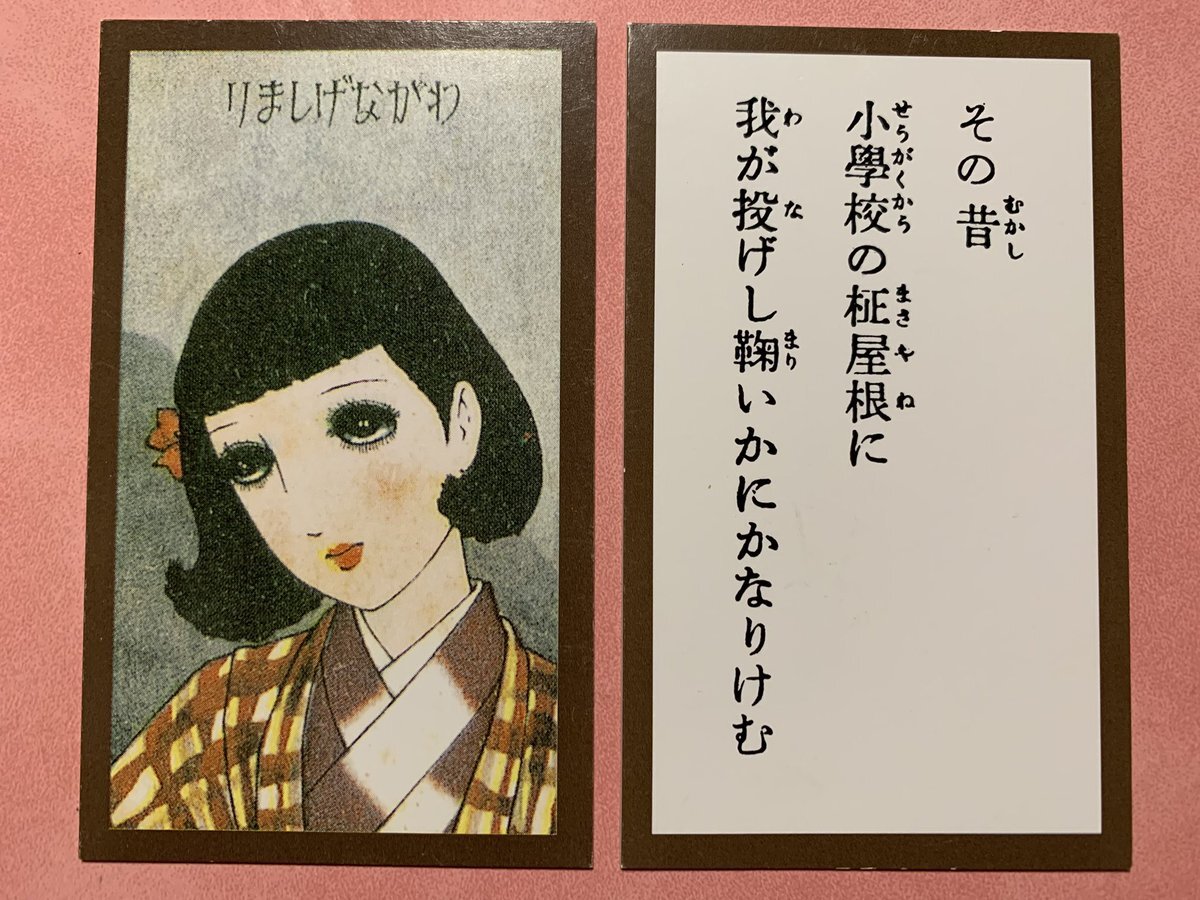 わがなげしまり
その昔
むかし
小學校の柾屋根に
せうがくから まさやね
我が投げし鞠いかにかなりけむ
わ な まり